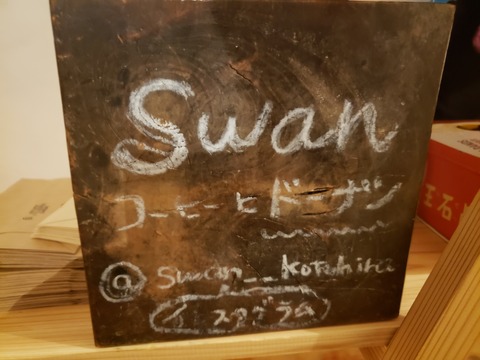 Swan
コーヒーとドーナツ
@ swan__kotohira
インスタグラム
玉石